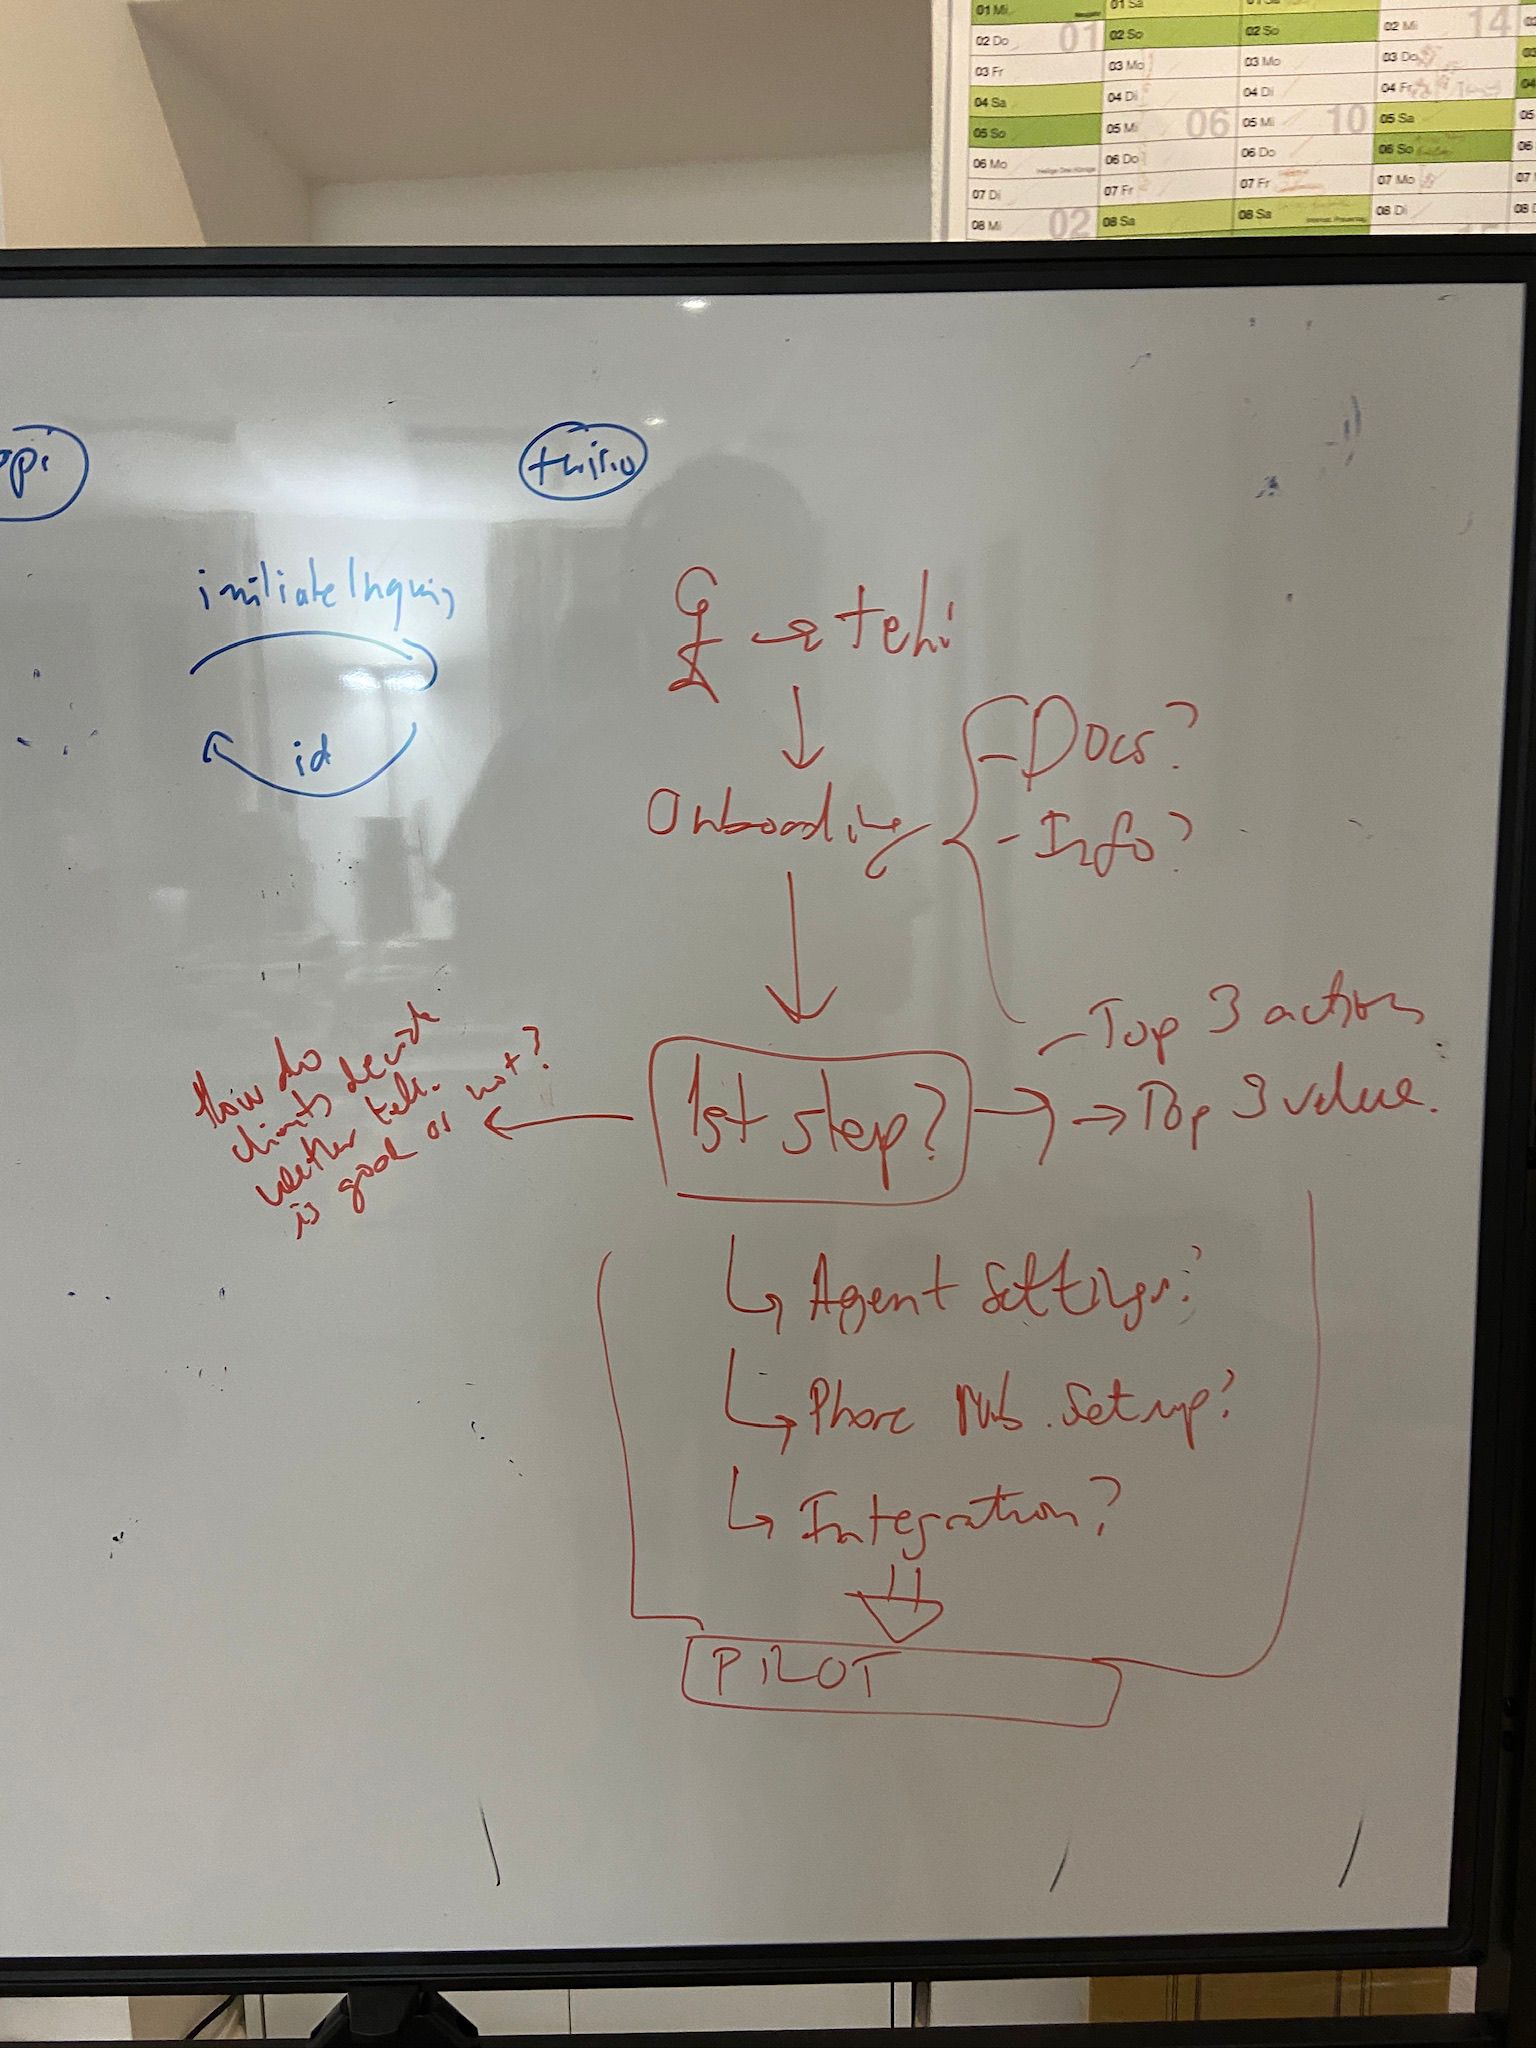 01 Mi
02 Do
01
03 Fr
04 Sa
05 So
06 Mo
07 Di
08 Mi
02
01 Sa
02 So
03 Mo
04 Di
05 Mi
06
06 Do
07 Fr
08 Sa
02 So
03 Mo
04 Di
05 Mi
10
06 Do
07 Fr
08 Sa
02 Mi
14
03 Do
04 Fr
05 Sa
06 So
07 Mo
08 Di
initiateInquiry
id
→ tehi
Onboarding
- Docs?
- Info?
- Top 3 actions
→ Top 3 value.
1st step?
How do
clients decide
whether
is good or not?
↳ Agent Settings?
↳ Phone Nub. Setup?
↳ Integration?
PILOT